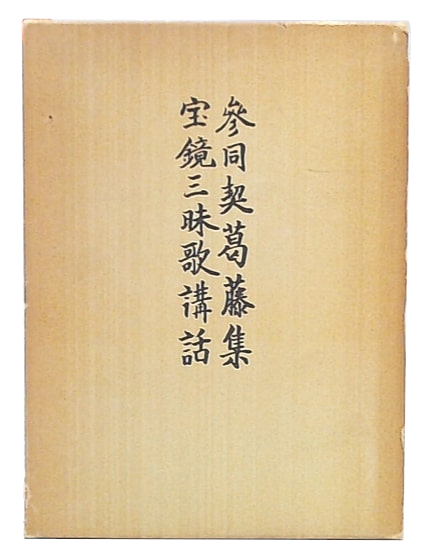 參同契葛藤集
宝鏡三昧歌講話